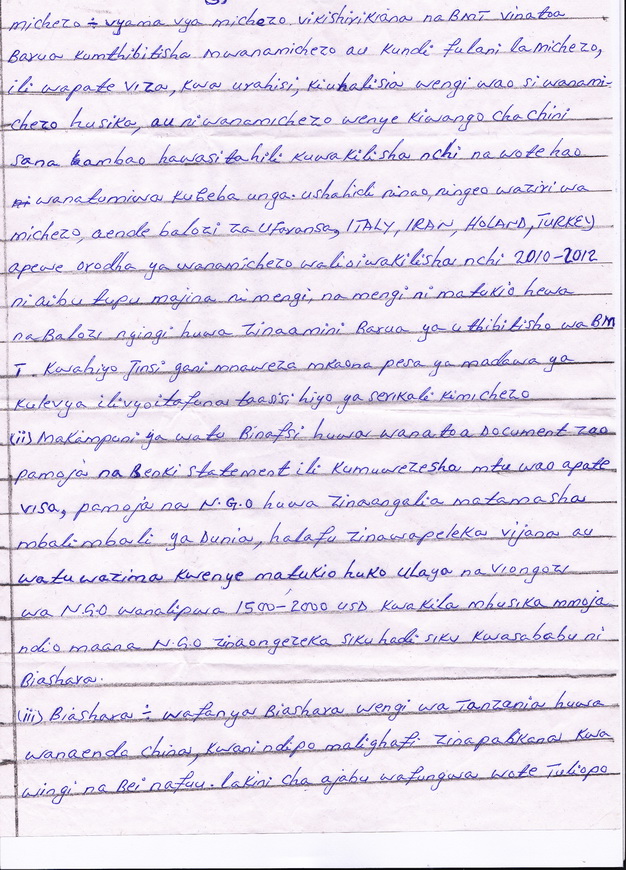 michezo ÷ vyama vya michezo vikishirikiana na BMT vinatoa
Barua kumthibitisha mwanamichezo au kundi fulani la michezo,
ili wapate viza, kwa urahisi, kiuhalisia wengi wao si wanami-
chezo husika, au ni wanamichezo wenye kiwango cha chini
sana ambao hawasitahili kuwakilisha nchi na wote hao
wanatumiwa kubeba unga. ushahidi ninao, ningeo waziri wa
michezo, aende balozi za Ufaransa, ITALY, IRAN, HOLAND, TURKEY
apewe orodha ya wanamichezo walioiwakilisha nchi 2010-2012
ni aibu tupu majina ni mengi, na mengi ni matukio hewa
na Balozi nyingi huwa zinaamini Barua ya uthibitisho wa BM
T. Kwahiyo Jinsi gani mnaweza mkaona pesa ya madawa ya
kulevya ilivyoitafuna taasisi hiyo ya serikali kimichezo
(ii) Makampuni ya watu Binafsi huwa wanatoa Document zao
pamoja na Benki statement ili kumuwezesha mtu wao apate
visa, pamoja na N.G.O huwa zinaangalia matamasha
mbalimbali ya Dunia, halafu zinawapeleka vijana au
watu wazima kwenye matukio huko Ulaya na viongozi
wa N.G.O wanalipwa 1500-2000 USD kwa kila mhusika mmoja
ndio maana N.G.O zinaongezeka siku hadi siku kwasababu ni
Biashara.
(iii) Biashara ÷ wafanya Biashara wengi wa Tanzania huwa
wanaenda china, kwani ndipo malighafi zinapatikana kwa
wingi na Bei nafuu. lakini cha ajabu wafungwa wote Tuliopo